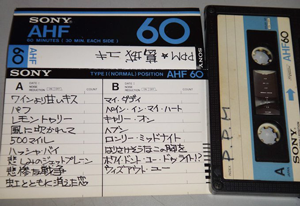 SONY
AHF 60
60 MINUTES (30 MIN EACH SIDE)
PPM ★
AHF 60
SONY
SONY TYPE I (NORMAL) POSITION AHF 60
A
B
ワインより甘いキス
パフ
レモン・トゥリー
風に吹かれて
500マイル
ハッシャ・バイ
悲しみのジェットプレーン
悲惨な戦争
虹とともに消えた恋
マイ・ダディ
ペイン・イン・マイ・ハート
キャリー・オン
ヘブン
ロンリー・ミッドナイト
はりさけそうなこの胸を
ホワイ・ドント・ユー・ドゥ・ライト!?
ウィズアウト・ユー
SONY
P.P.M
A
AHF 60